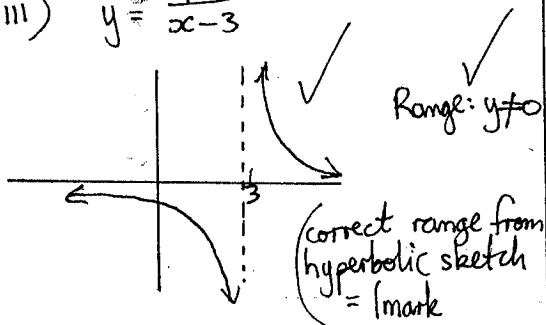 III) y = /x-3
Range: y≠0
3
(correct range from
hyperbolic sketch
= 1 mark